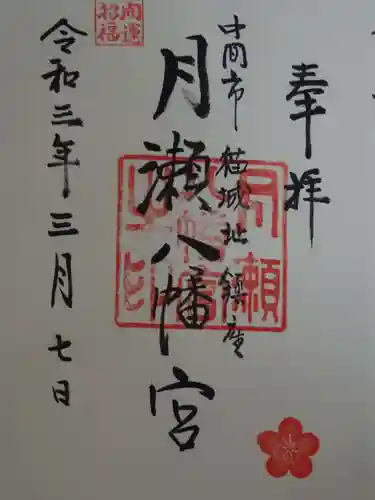 奉拝
中間市 猫城址 鎮座
月瀬八幡宮
令和三年三月七日
開運
招福
月瀬
八幡宮